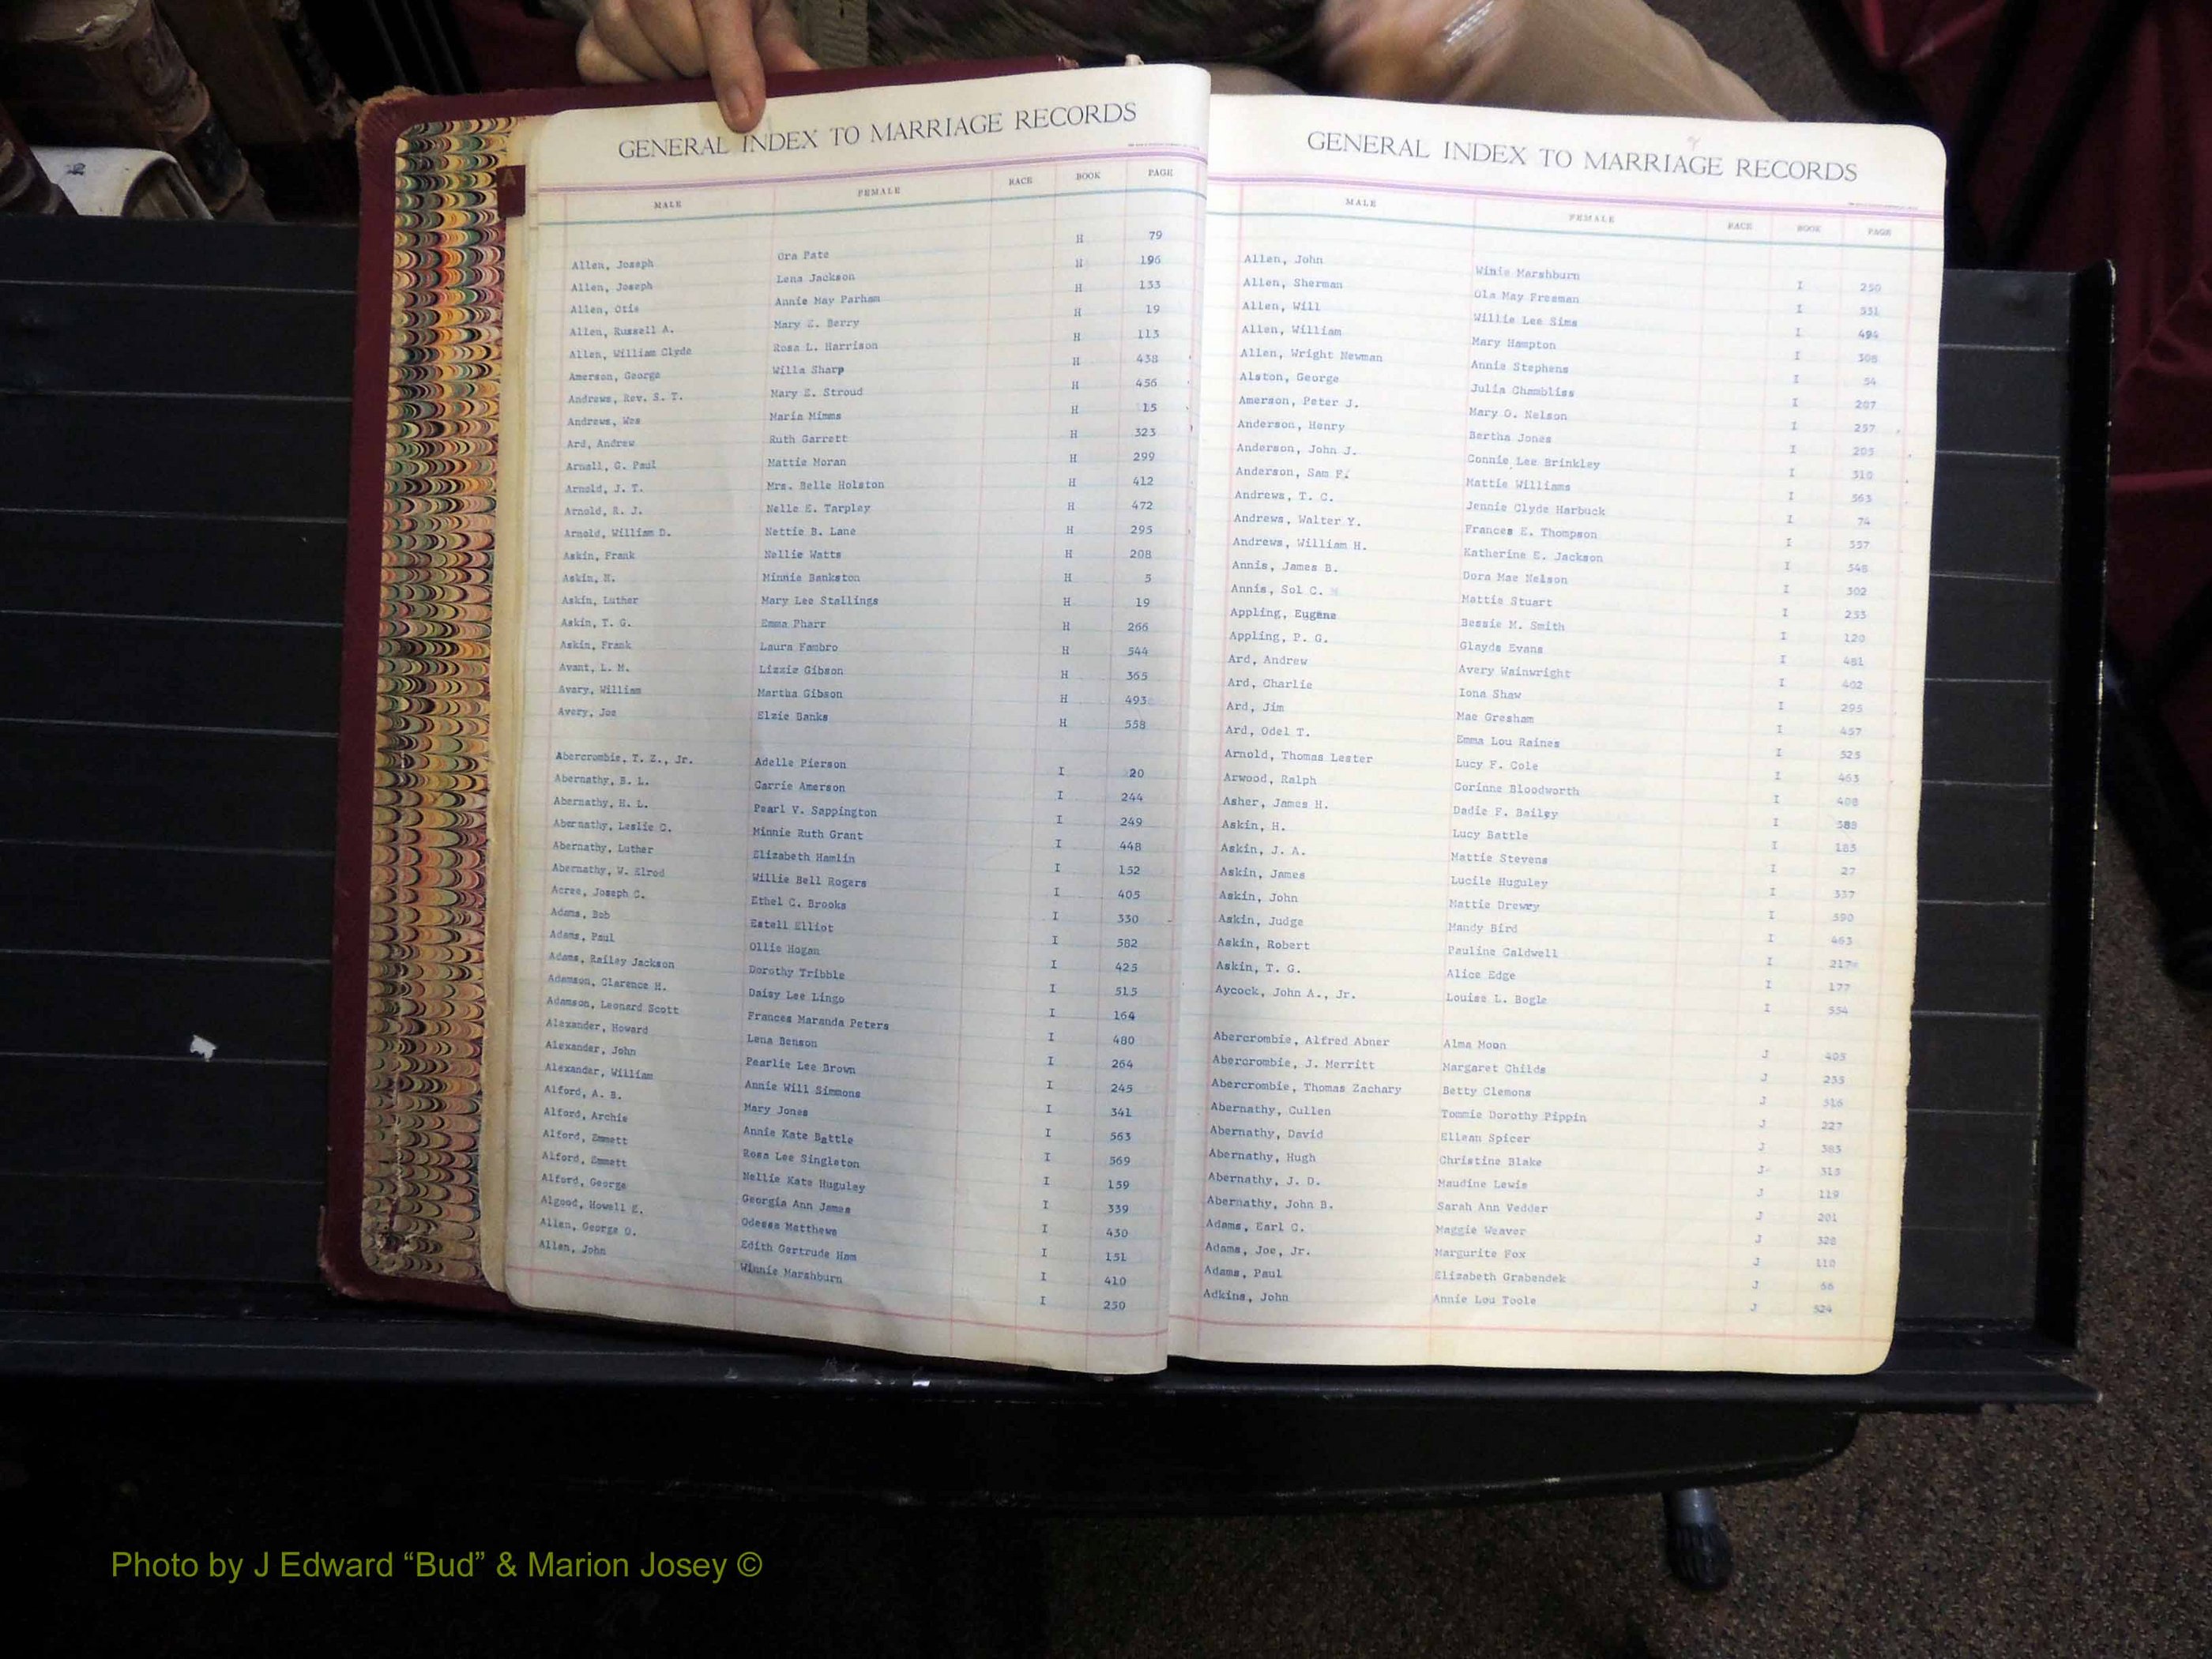 GENERAL INDEX TO MARRIAGE RECORDS
MALE FEMALE RACE BOOK PAGE
Allen, Joseph Ora Pate H 79
Allen, Joseph Lena Jackson H 196
Allen, Otis Annie May Parham H 133
Allen, Russell A. Mary E. Berry H 19
Allen, William Clyde Rosa L. Harrison H 113
Amerson, George Willa Sharp H 438
Andrews, Rev. S. T. Mary E. Stroud H 456
Andrews, Wes Maria Mimms H 15
Ard, Andrew Ruth Garrett H 323
Arnall, G. Paul Mattie Moran H 299
Arnold, J. T. Mrs. Belle Holston H 412
Arnold, R. J. Nelle E. Tarpley H 472
Arnold, William D. Nettie B. Lane H 295
Askin, Frank Nellie Watts H 208
Askin, H. Minnie Bankston H 5
Askin, Luther Mary Lee Stallings H 19
Askin, T. G. Emma Pharr H 266
Askin, Frank Laura Fambro H 544
Avant, L. M. Lizzie Gibson H 365
Avery, William Martha Gibson H 493
Avery, Joe Elzie Banks H 558
Abercrombie, T. Z., Jr. Adelle Pierson I 20
Abernathy, B. L. Carrie Amerson I 244
Abernathy, H. L. Pearl V. Sappington I 249
Abernathy, Leslie C. Minnie Ruth Grant I 448
Abernathy, Luther Elizabeth Hamlin I 152
Abernathy, W. Elrod Willie Bell Rogers I 405
Acree, Joseph C. Ethel C. Brooks I 330
Adams, Bob Estell Elliot I 582
Adams, Paul Ollie Hogan I 425
Adams, Railey Jackson Dorothy Tribble I 515
Adamson, Clarence H. Daisy Lee Lingo I 164
Adamson, Leonard Scott Frances Maranda Peters I 480
Alexander, Howard Lena Benson I 264
Alexander, John Pearlie Lee Brown I 245
Alexander, William Annie Will Simmons I 341
Alford, A. B. Mary Jones I 563
Alford, Archie Annie Kate Battle I 569
Alford, Emmett Rosa Lee Singleton I 159
Alford, Emmett Nellie Kate Huguley I 339
Alford, George Georgia Ann James I 430
Algood, Howell E. Odessa Matthews I 151
Allen, George O. Edith Gertrude Ham I 410
Allen, John Winnie Marshburn I 250
GENERAL INDEX TO MARRIAGE RECORDS
MALE FEMALE RACE BOOK PAGE
Allen, John Winie Marshburn I 250
Allen, Sherman Ola May Freeman I 531
Allen, Will Willie Lee Sims I 494
Allen, William Mary Hampton I 308
Allen, Wright Newman Annie Stephens I 54
Alston, George Julia Chambliss I 207
Amerson, Peter J. Mary O. Nelson I 257
Anderson, Henry Bertha Jones I 205
Anderson, John J. Connie Lee Brinkley I 310
Anderson, Sam F. Mattie Williams I 563
Andrews, T. C. Jennie Clyde Harbuck I 74
Andrews, Walter Y. Frances E. Thompson I 557
Andrews, William H. Katherine E. Jackson I 548
Annis, James B. Dora Mae Nelson I 302
Annis, Sol C. Mattie Stuart I 253
Appling, Eugene Bessie M. Smith I 120
Appling, P. G. Glayds Evans I 481
Ard, Andrew Avery Wainwright I 402
Ard, Charlie Iona Shaw I 295
Ard, Jim Mae Gresham I 457
Ard, Odel T. Emma Lou Raines I 525
Arnold, Thomas Lester Lucy F. Cole I 463
Arwood, Ralph Corinne Bloodworth I 408
Asher, James H. Dadie F. Bailey I 588
Askin, H. Lucy Battle I 185
Askin, J. A. Mattie Stevens I 27
Askin, James Lucile Huguley I 337
Askin, John Mattie Drewry I 590
Askin, Judge Mandy Bird I 463
Askin, Robert Pauline Caldwell I 217
Askin, T. G. Alice Edge I 177
Aycock, John A., Jr. Louise L. Bogle I 554
Abercrombie, Alfred Abner Alma Moon J 405
Abercrombie, J. Merritt Margaret Childs J 235
Abercrombie, Thomas Zachary Betty Clemons J 316
Abernathy, Cullen Tommie Dorothy Pippin J 227
Abernathy, David Ellean Spicer J 383
Abernathy, Hugh Christine Blake J 313
Abernathy, J. D. Maudine Lewis J 119
Abernathy, John B. Sarah Ann Vedder J 201
Adams, Earl C. Maggie Weaver J 328
Adams, Joe, Jr. Margurite Fox J 110
Adams, Paul Elizabeth Grabendek J 66
Adkins, John Annie Lou Toole J 524
A
Photo by J Edward “Bud” & Marion Josey ©